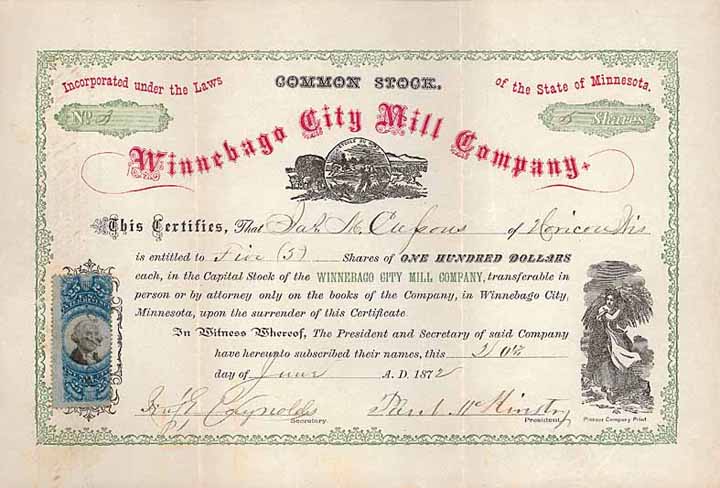 COMMON STOCK.
Incorporated under the Laws of the State of Minnesota.
No. 5 Shares
Winnebago City Mill Company.
This Certifies, That of Horicon Wis
is entitled to Five (5) Shares of ONE HUNDRED DOLLARS
each, in the Capital Stock of the WINNEBAGO CITY MILL COMPANY, transferable in
person or by attorney only on the books of the Company, in Winnebago City,
Minnesota, upon the surrender of this Certificate.
In Witness Whereof, The President and Secretary of said Company
have hereunto subscribed their names, this 20th
day of June A. D. 1872
Reynolds
Secretary.
President.
Pioneer Company Print.